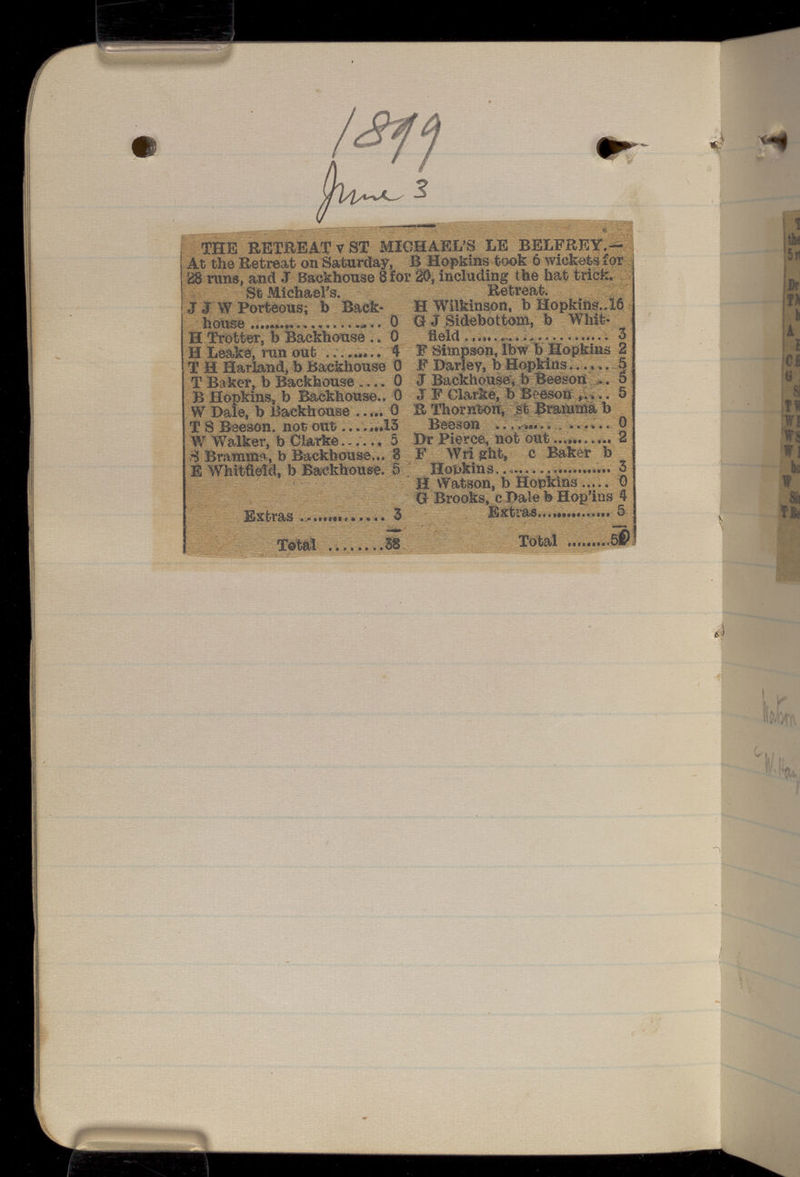 1899
June 3
THE RETREAT v ST MICHAEL'S LE BELFREY.—
At the Retreat on Saturday, B Hopkins took 6 wickets for
28 runs, and J Backhouse 8 for 20, including the hat trick.
St Michael's.
J J W Porteous, b Back-
house .................... 0
H Trotter, b Backhouse .. 0
H Leake, run out ........ 4
T H Harland, b Backhouse 0
T Baker, b Backhouse .... 0
B Hopkins, b Backhouse.. 0
W Dale, b Backhouse ..... 0
T S Beeson. not out .......13
W Walker, b Clarke...... 5
S Bramma, b Backhouse... 8
E Whitfield, b Backhouse. 5
Extras ............. 3
Total ........38
Retreat.
H Wilkinson, b Hopkins..16
G J Sidebottom, b Whit-
field ...................... 3
F Simpson, lbw b Hopkins 2
F Darley, b Hopkins...... 5
J Backhouse, b Beeson ... 5
J F Clarke, b Beeson ..... 5
R Thornton, st Bramma b
Beeson ................ 0
Dr Pierce, not out .......... 2
F Wright, c Baker b
Hopkins.................... 3
H Watson, b Hopkins ..... 0
G Brooks, c Dale b Hop'ins 4
Extras............... 5
Total .........50